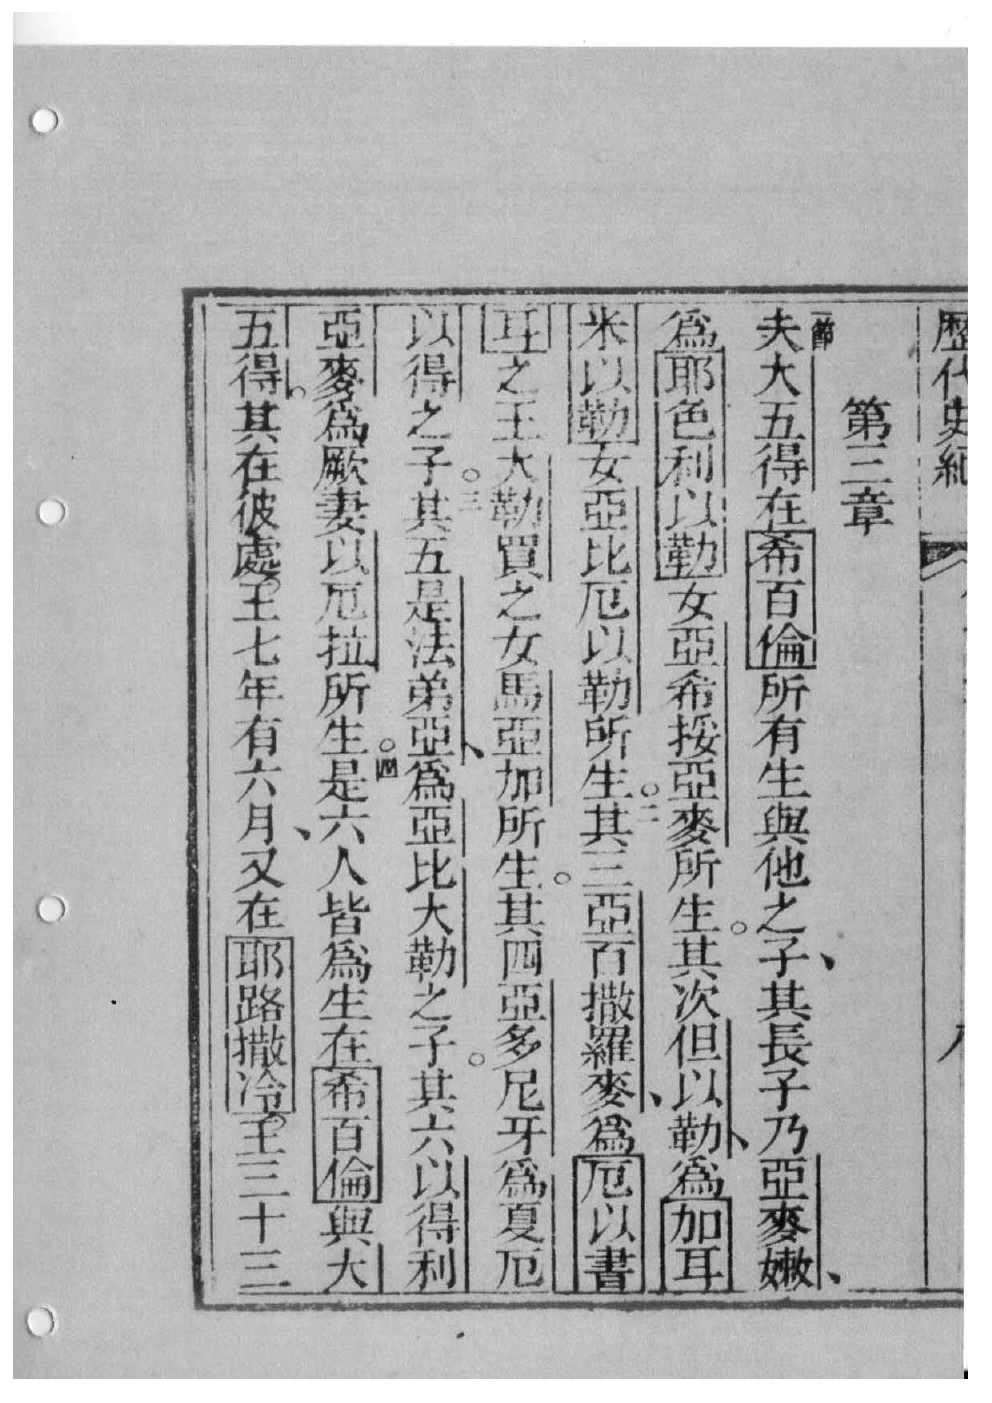 歷代史紀
第三章
一節夫大五得在希百倫所有生與他之子、其長子乃亞麥嫩、
爲耶色利以勒女亞希挼亞麥所生。其次但以勒、爲加耳
米以勒女亞比厄以勒所生。二其三亞百撒羅麥、爲厄以書
耳之王大勒買之女馬亞加所生。其四亞多尼牙爲夏厄
以得之子。三其五是法弟亞、爲亞比大勒之子。其六以得利
亞麥爲厥妻以厄拉所生。四是六人皆爲生在希百倫與大
五得。其在彼處。王七年有六月、又在耶路撒冷。王三十三